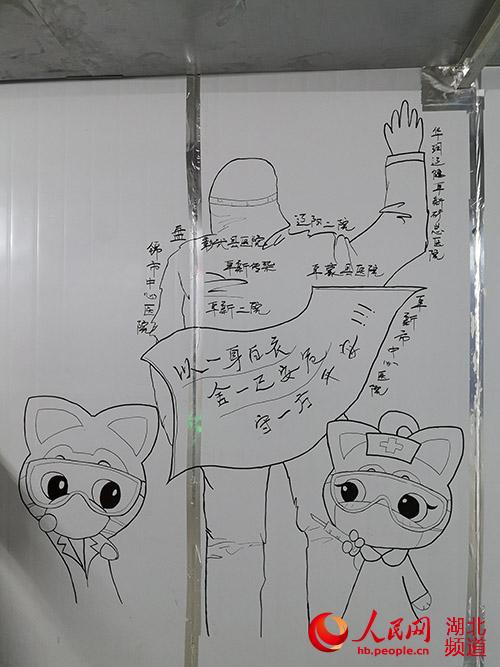 华润辽健阜新矿总医院
辽阳二院
彰武县医院
阜新传染
阜蒙县医院
阜新二院
锦市中心医院
阜新市中心医院
以一身白衣
舍一己安危
守一方
人民网 湖北频道
hb.people.cn